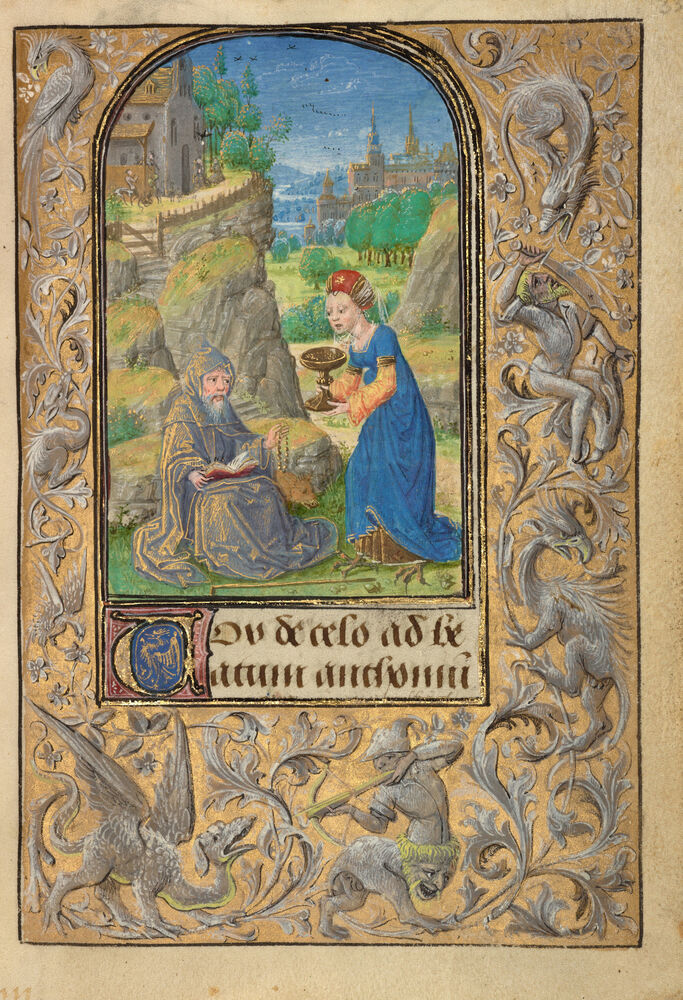 Vox de celo ad be
atum anthoniū